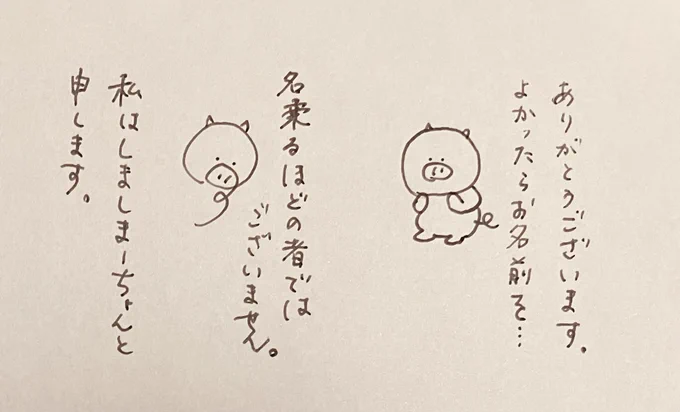 ありがとうございます。
よかったらお名前を…
名乗るほどの者では
ございません。
私はしましまーちゃんと
申します。